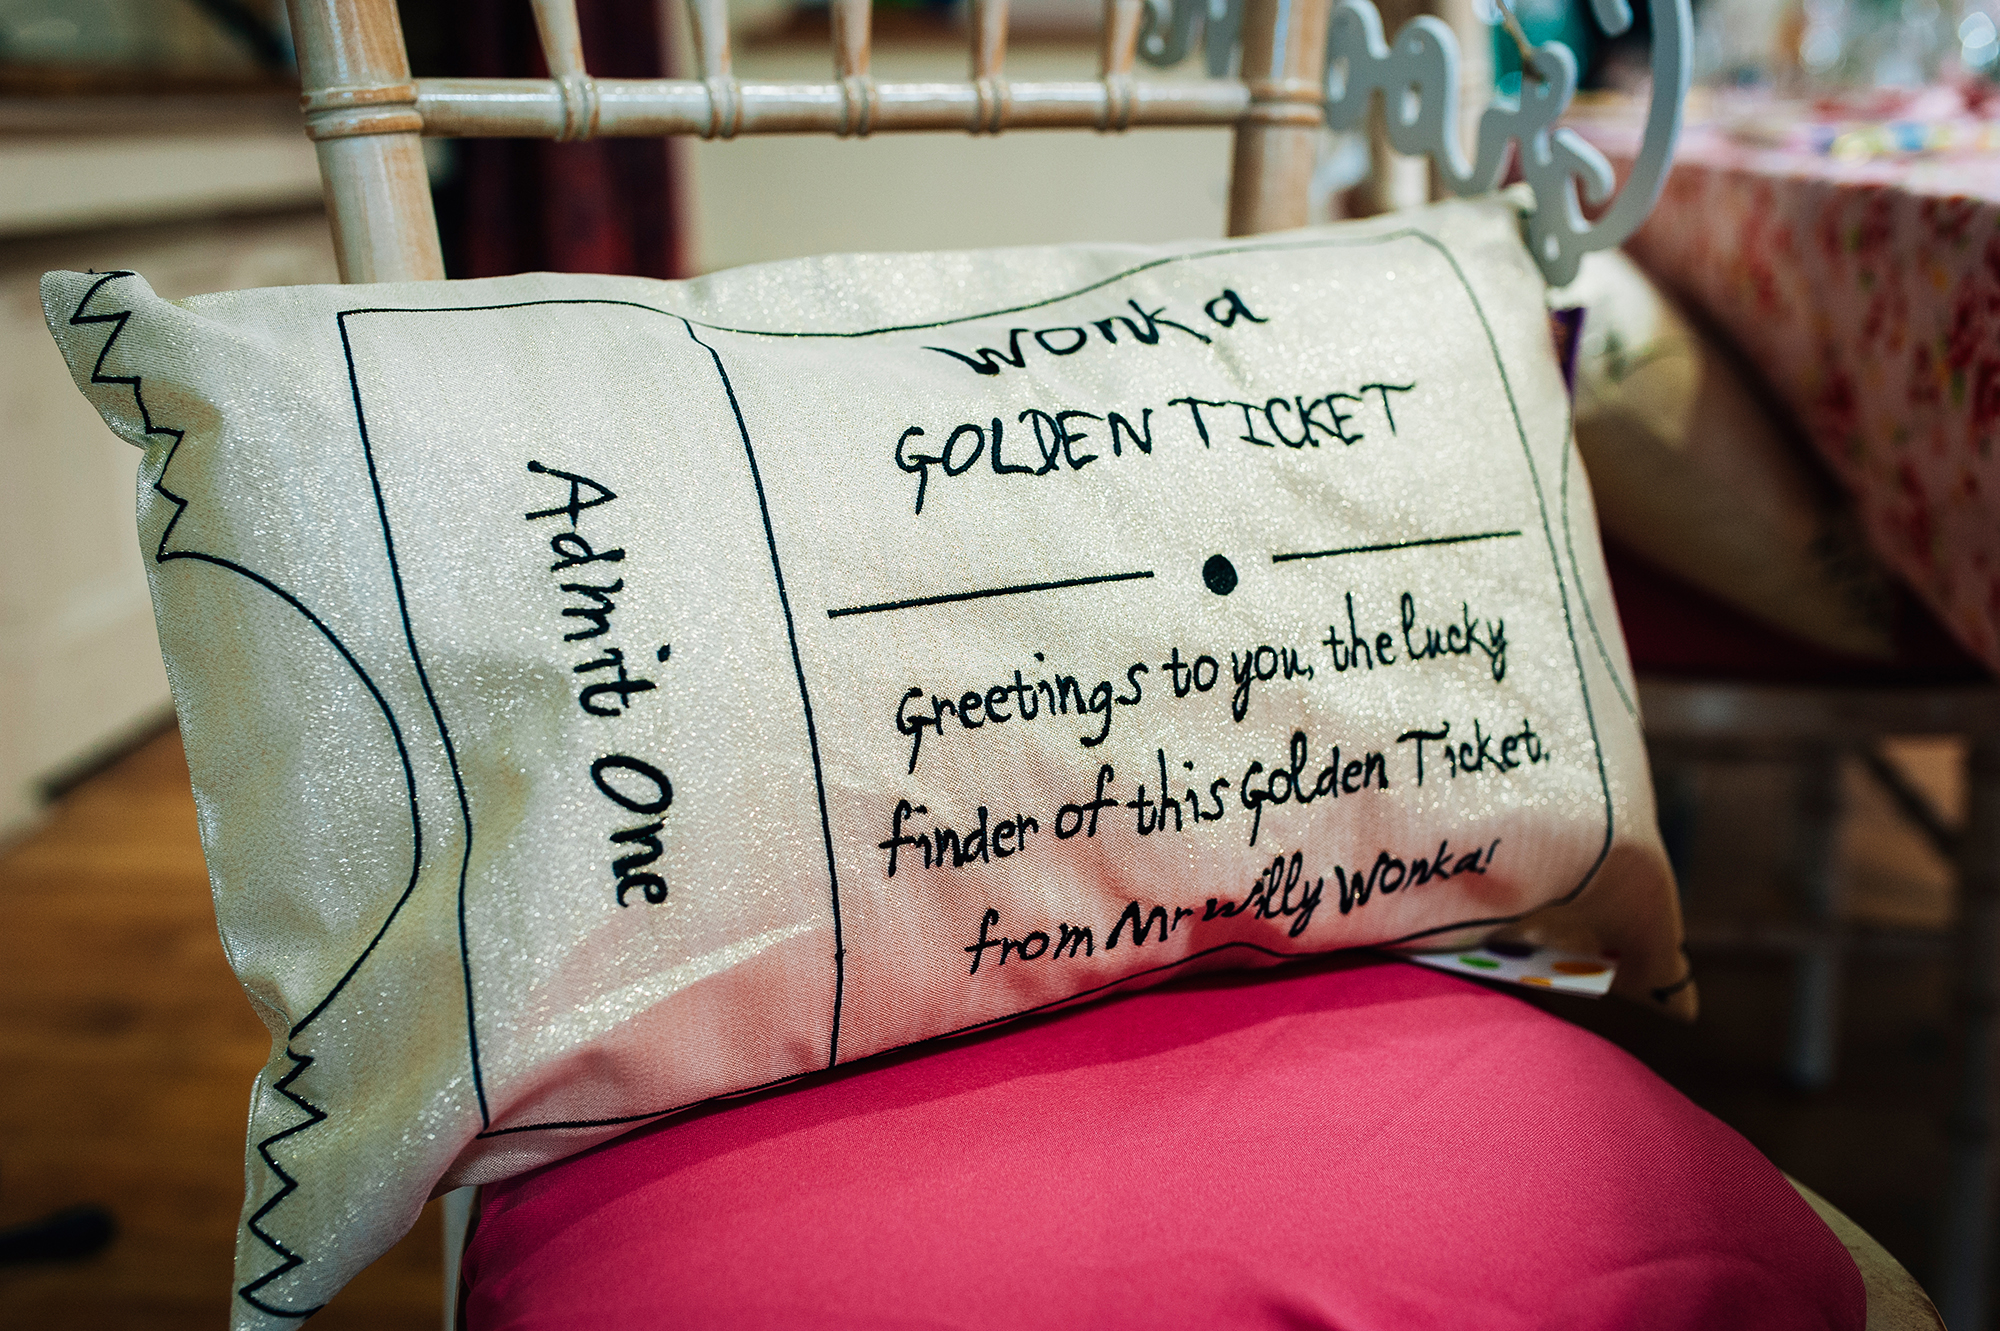 Admit One
Wonka
GOLDEN TICKET
Greetings to you, the lucky
finder of this Golden Ticket.
from Mr Willy Wonka!